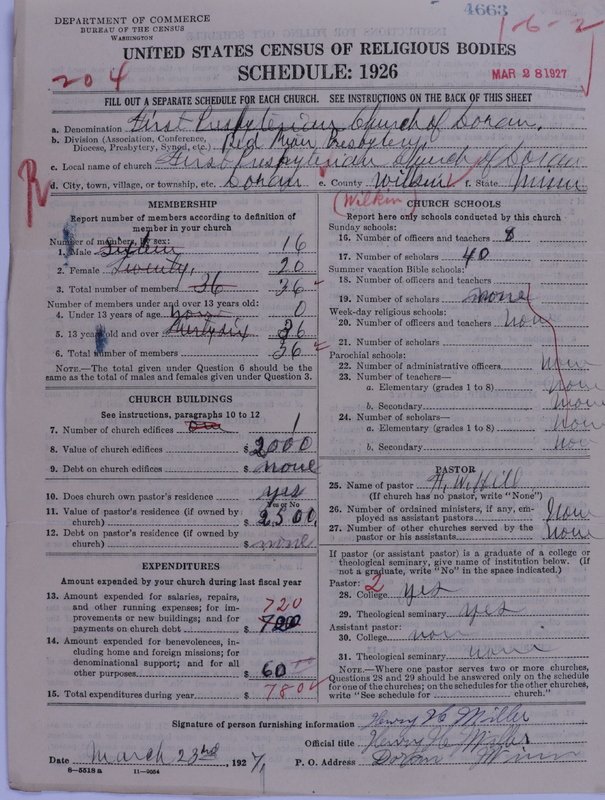 4663
1-6-2
DEPARTMENT OF COMMERCE
BUREAU OF THE CENSUS
WASHINGTON
UNITED STATES CENSUS OF RELIGIOUS BODIES
204
SCHEDULE: 1926
MAR 28 1927
FILL OUT A SEPARATE SCHEDULE FOR EACH CHURCH. SEE INSTRUCTIONS ON THE BACK OF THIS SHEET
a. Denomination First Presbyterian Church of Doran.
b. Division (Association, Conference, Diocese, Presbytery, Synod, etc.) Red River Presbytery
c. Local name of church First Presbyterian Church of Doran
R
d. City, town, village, or township, etc. Doran e. County Wilkin f. State Minn
(Wilkin)
MEMBERSHIP
Report number of members according to definition of
member in your church
Number of members, by sex:
1. Male Sixteen 16
2. Female Twenty, 20
3. Total number of members 36 36
Number of members under and over 13 years old:
4. Under 13 years of age none 0
5. 13 years old and over Thirty six 36
6. Total number of members 36
NOTE.—The total given under Question 6 should be the
same as the total of males and females given under Question 3.
CHURCH BUILDINGS
See instructions, paragraphs 10 to 12
7. Number of church edifices One 1
8. Value of church edifices $ 2000
9. Debt on church edifices $ none
10. Does church own pastor's residence yes
Yes or No
11. Value of pastor's residence (if owned by
church) $ 2500.
12. Debt on pastor's residence (if owned by
church) $ none
EXPENDITURES
Amount expended by your church during last fiscal year
13. Amount expended for salaries, repairs,
and other running expenses; for im-
provements or new buildings; and for
payments on church debt $ 720
14. Amount expended for benevolences, in-
cluding home and foreign missions; for
denominational support; and for all
other purposes $ 60
15. Total expenditures during year $ 780
CHURCH SCHOOLS
Report here only schools conducted by this church
Sunday schools:
16. Number of officers and teachers 8
17. Number of scholars 40
Summer vacation Bible schools:
18. Number of officers and teachers
19. Number of scholars none
Week-day religious schools:
20. Number of officers and teachers None
21. Number of scholars
Parochial schools:
22. Number of administrative officers None
23. Number of teachers—
a. Elementary (grades 1 to 8) None
b. Secondary None
24. Number of scholars—
a. Elementary (grades 1 to 8) None
b. Secondary Non
PASTOR
25. Name of pastor H. W. Hill
(If church has no pastor, write "None")
26. Number of ordained ministers, if any, em-
ployed as assistant pastors None
27. Number of other churches served by the
pastor or his assistants None
If pastor (or assistant pastor) is a graduate of a college or
theological seminary, give name of institution below. (If
not a graduate, write "No" in the space indicated.)
Pastor: 2
28. College yes
29. Theological seminary yes
Assistant pastor:
30. College none
31. Theological seminary none
NOTE.—Where one pastor serves two or more churches,
Questions 28 and 29 should be answered only on the schedule
for one of the churches; on the schedules for the other churches,
write "See schedule for church."
Signature of person furnishing information Henry H Miller
Official title Henry H Miller
Date March 23rd, 1927, P. O. Address Doran Minn
8—5518 a 11—9054